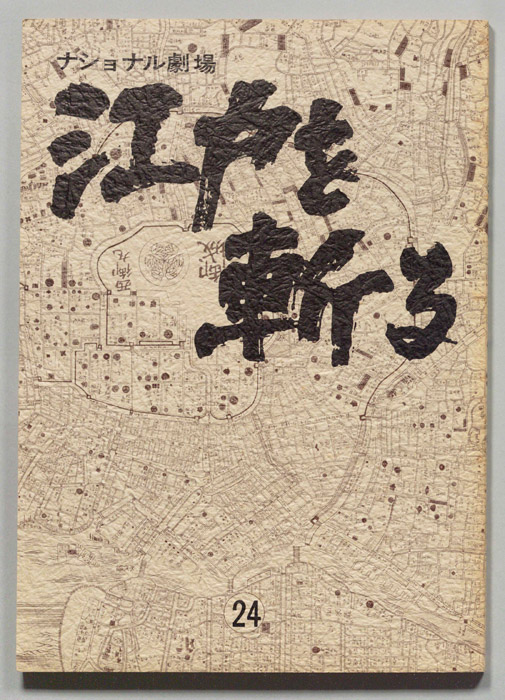 ナショナル劇場
江戸を
斬る
御城
西御丸
24